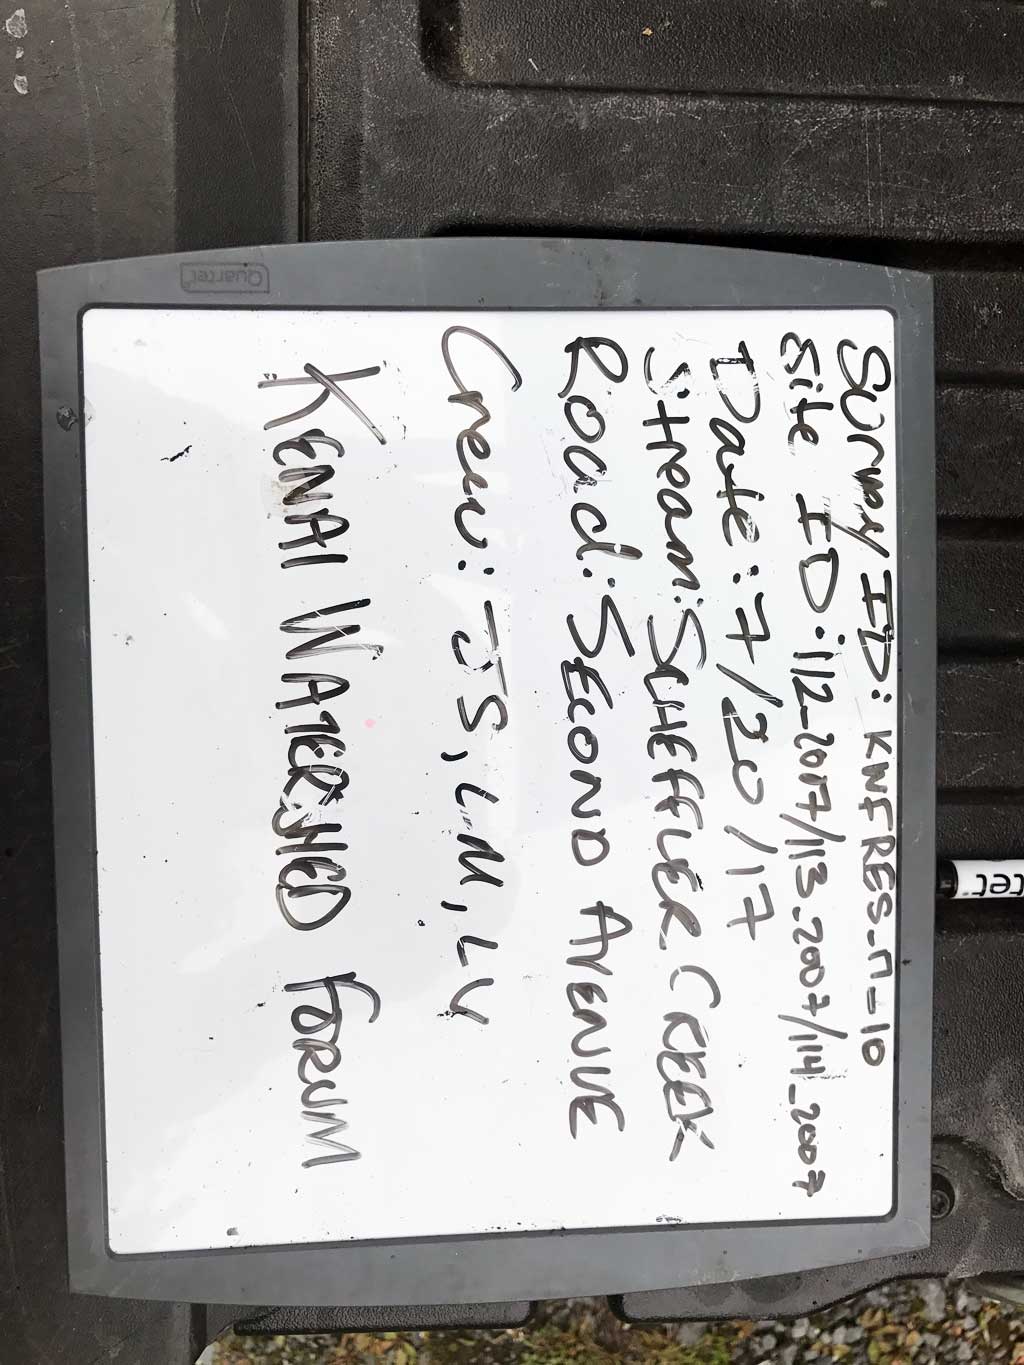 Survey ID: KWFRES_17_10
Site ID: 112_2017/113_2007/114_2007
Date: 7/20/17
Stream: SCHEFFLER CREEK
Road: SECOND AVENUE
Crew: JS, LM, LV
KENAI WATERSHED FORUM
Quartet
rtet